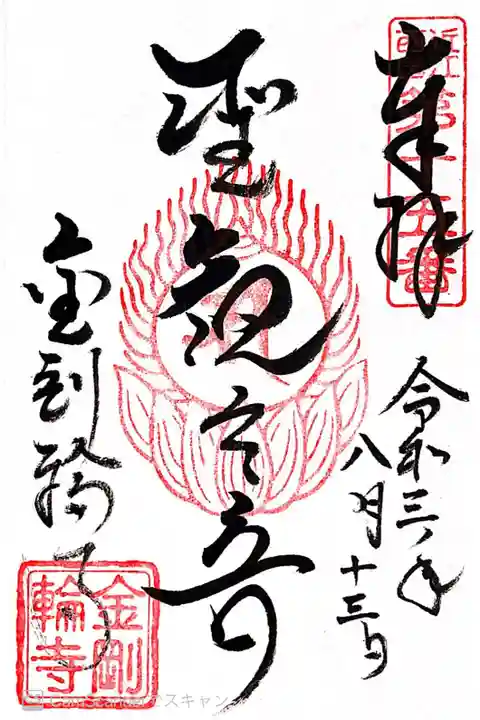 奉拝
近江西国第十五番
令和三年
八月十三日
聖観世音
金剛輪寺
金剛輪寺
CamScannerでスキャン